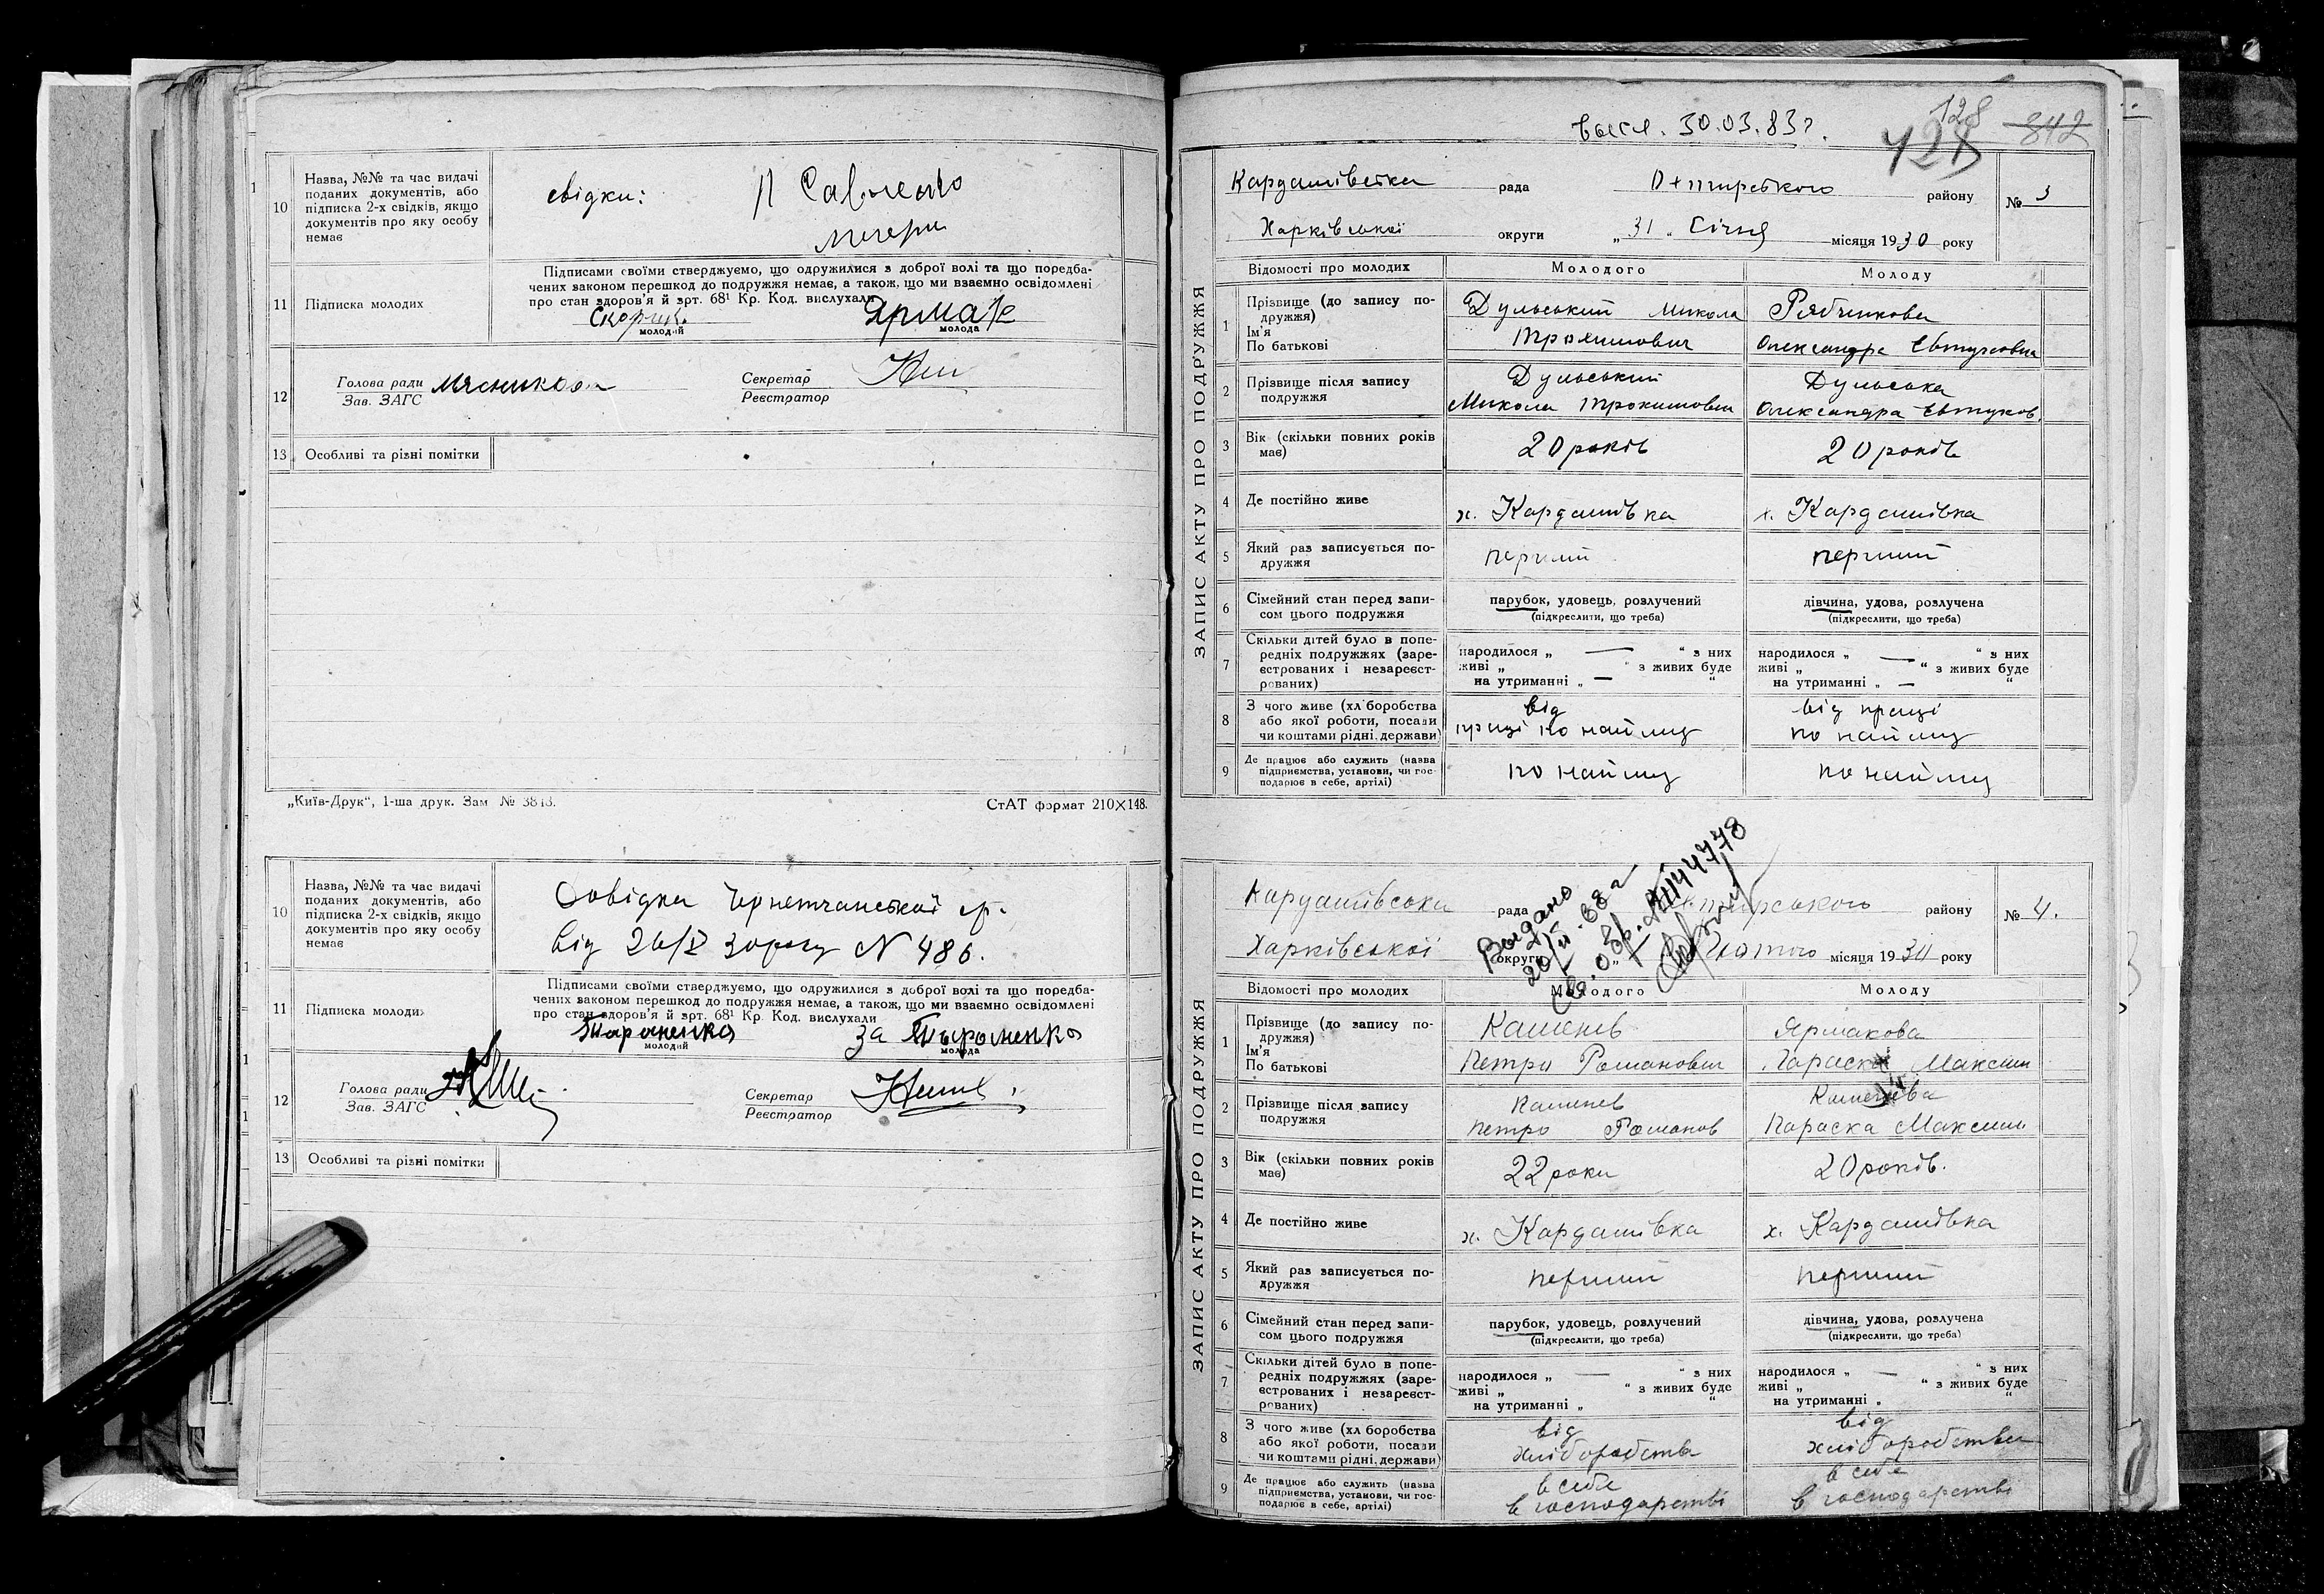 10
Назва, №№ та час видачі
поданих документів, або
підписка 2-х свідків, якщо
документів про яку особу
немає
свідки:
11
Підписка молодих
Підписами своїми стверджуємо, що одружилися з доброї волі та що передба-
чених законом перешкод до подружжя немає, а також, що ми взаємно освідомлені
про стан здоров'я й арт. 68¹ Кр. Код. вислухали
молодий
Ярмак
молода
12
Голова ради
Зав. ЗАГС
Секретар
Реєстратор
13
Особливі та різні помітки
„Київ-Друк“, 1-ша друк. Зам № 3813.
СтАТ формат 210×148.
10
Назва, №№ та час видачі
поданих документів, або
підписка 2-х свідків, якщо
документів про яку особу
немає
Довідка Чернетчанської
від 26/ 30року N 486.
11
Підписка молодих
Підписами своїми стверджуємо, що одружилися з доброї волі та що поредба-
чених законом перешкод до подружжя немає, а також, що ми взаємно освідомлені
про стан здоров'я й арт. 68¹ Кр. Код. вислухали
Тараненко
молодий
за Тараненко
молода
12
Голова ради
Зав. ЗАГС
Секретар
Реєстратор
13
Особливі та різні помітки
30.03.83г.
128
128
842
ЗАПИС АКТУ ПРО ПОДРУЖЖЯ
Кардашівська рада Охтирського району
№ 3
Харківської округи „31„ Січня місяця 1930 року
Відомості про молодих
Молодого
Молоду
1
Прізвище (до запису по-
дружжя)
Ім'я
По батькові
Дульський Микола
Трохимович
Рябченкова
Олександра Євтуховна
2
Прізвище після запису
подружжя
Дульський
Микола Трохимович
Дульська
Олександра Євтухов.
3
Вік (скільки повних років
має)
20 років
20 років
4
Де постійно живе
х. Кардашівка
х. Кардашівка
5
Який раз записується по-
дружжя
перший
перший
6
Сімейний стан перед запи-
сом цього подружжя
парубок, удовець, розлучений
(підкреслити, що треба)
дівчина, удова, розлучена
(підкреслити, що треба)
7
Скільки дітей було в попе-
редніх подружжях (заре-
єстрованих і незареєст-
рованих)
народилося „ — “ з них
живі „ “ з живих буде
на утриманні „ — “
народилося „ — “ з них
живі „ “ з живих буде
на утриманні „ — “
8
З чого живе (хліборобства
або якої роботи, посади
чи коштами рідні, держави)
від
праці по найму
від праці
по найму
9
Де працює або служить (назва
підприємства, установи, чи гос-
подарює в себе, артілі)
по найму
по найму
ЗАПИС АКТУ ПРО ПОДРУЖЖЯ
Кардашівська рада району
№ 4.
Харківської округи Лютого місяця 1930 року
Выдано
Відомості про молодих
Молодого
Молоду
1
Прізвище (до запису по-
дружжя)
Ім'я
По батькові
Каменев
Петро Романович
Ярмакова
Параска Максим
2
Прізвище після запису
подружжя
Каменев
Петро Романов
Каменева
Параска Максим
3
Вік (скільки повних років
має)
22 роки
20 років.
4
Де постійно живе
х. Кардашівка
х. Кардашівка
5
Який раз записується по-
дружжя
перший
перший
6
Сімейний стан перед запи-
сом цього подружжя
парубок, удовець, розлучений
(підкреслити, що треба)
дівчина, удова, розлучена
(підкреслити, що треба)
7
Скільки дітей було в попе-
редніх подружжях (заре-
єстрованих і незареєст-
рованих)
народилося „ — “ з них
живі „ “ з живих буде
на утриманні „ “
народилося „ — “ з них
живі „ “ з живих буде
на утриманні „ “
8
З чого живе (хліборобства
або якої роботи, посади
чи коштами рідні, держави)
від
хліборобства
від
хліборобства
9
Де працює або служить (назва
підприємства, установи, чи гос-
подарює в себе, артілі)
в себе
в господарстві
в себе
в господарстві